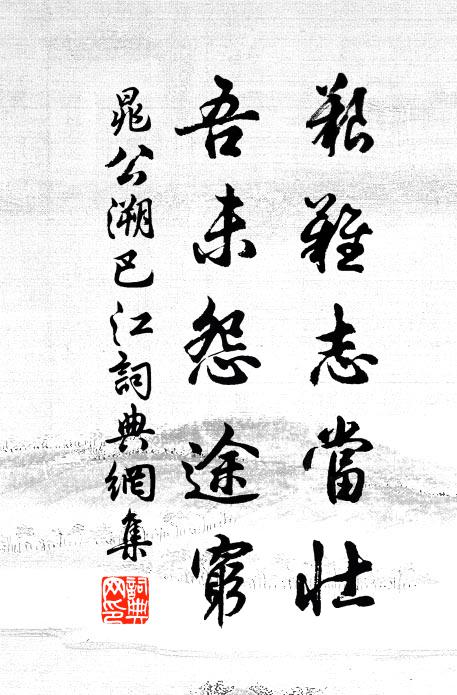 艱難志當壯
吾未怨途窮
晁公溯巴江詞典網集
詞典網印